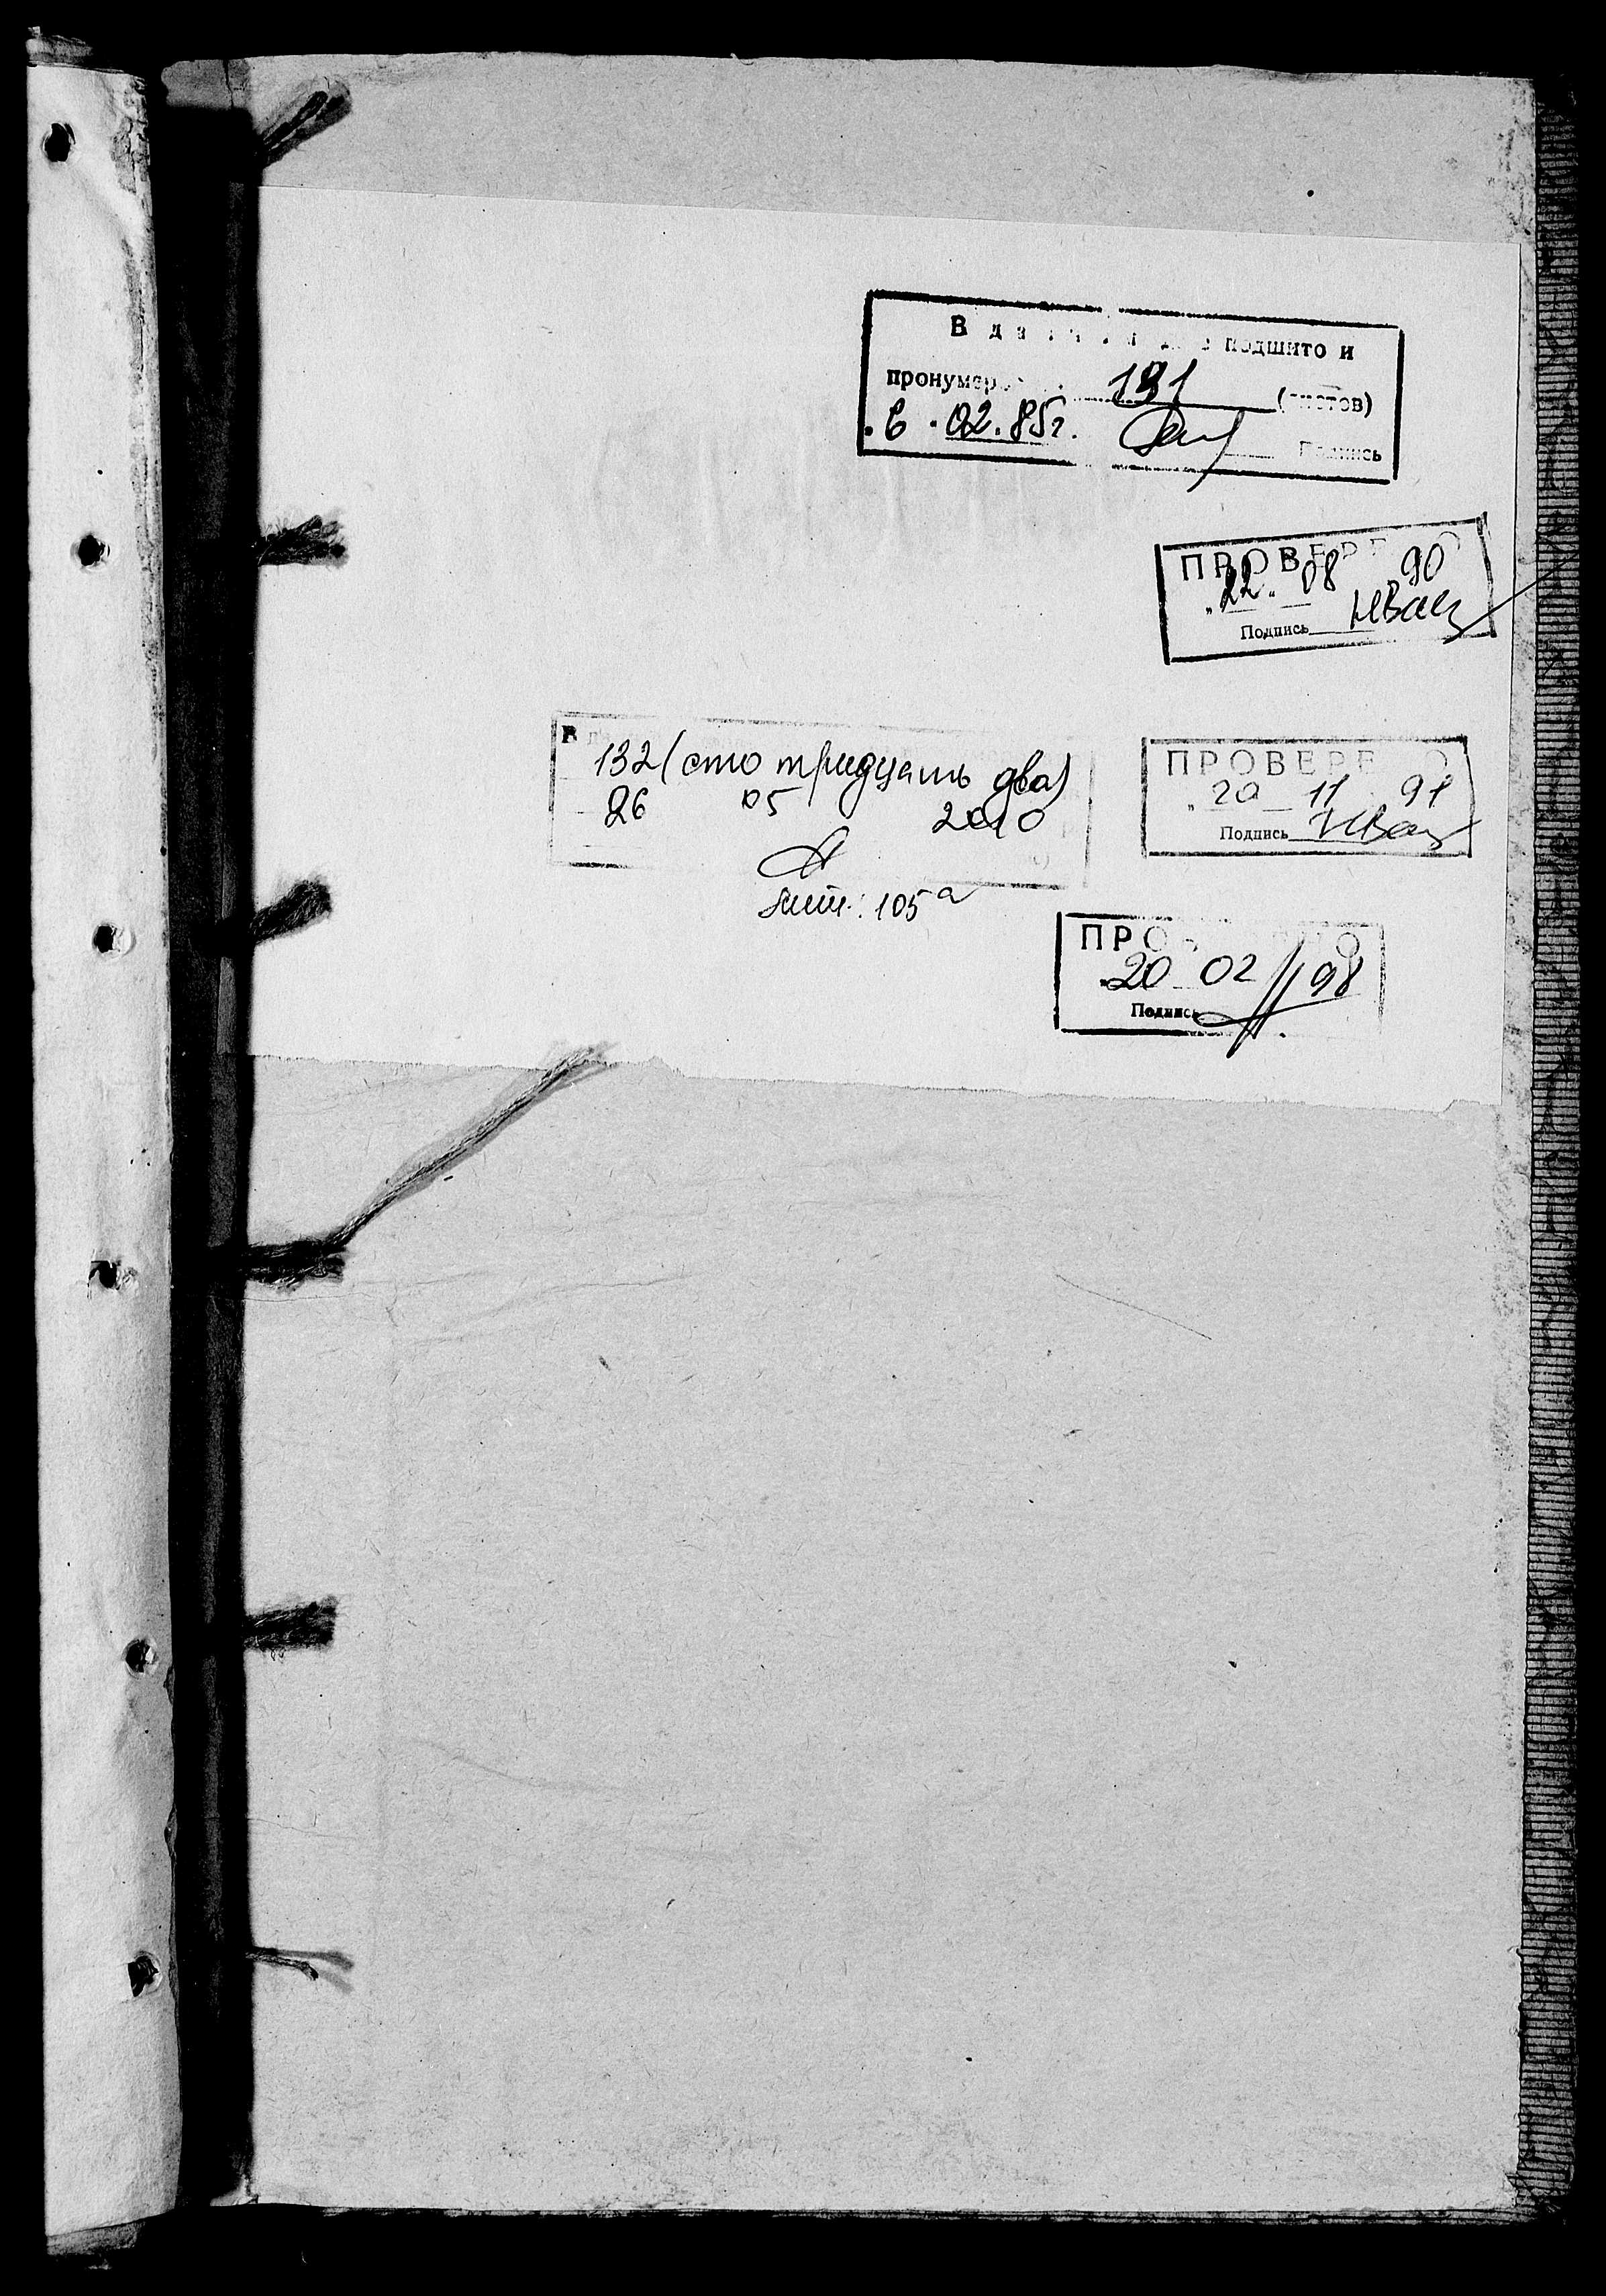 В данном деле подшито и
пронумер 131 (листов)
6. 02. 85г. Подпись
ПРОВЕРЕНО
"22" 08 90
Подпись
В
132 (сто тридцать два)
26 05 2010
лит.: 105а
ПРОВЕРЕНО
"20 11 91
Подпись
ПРОВЕРЕНО
"20 02 98
Подпись